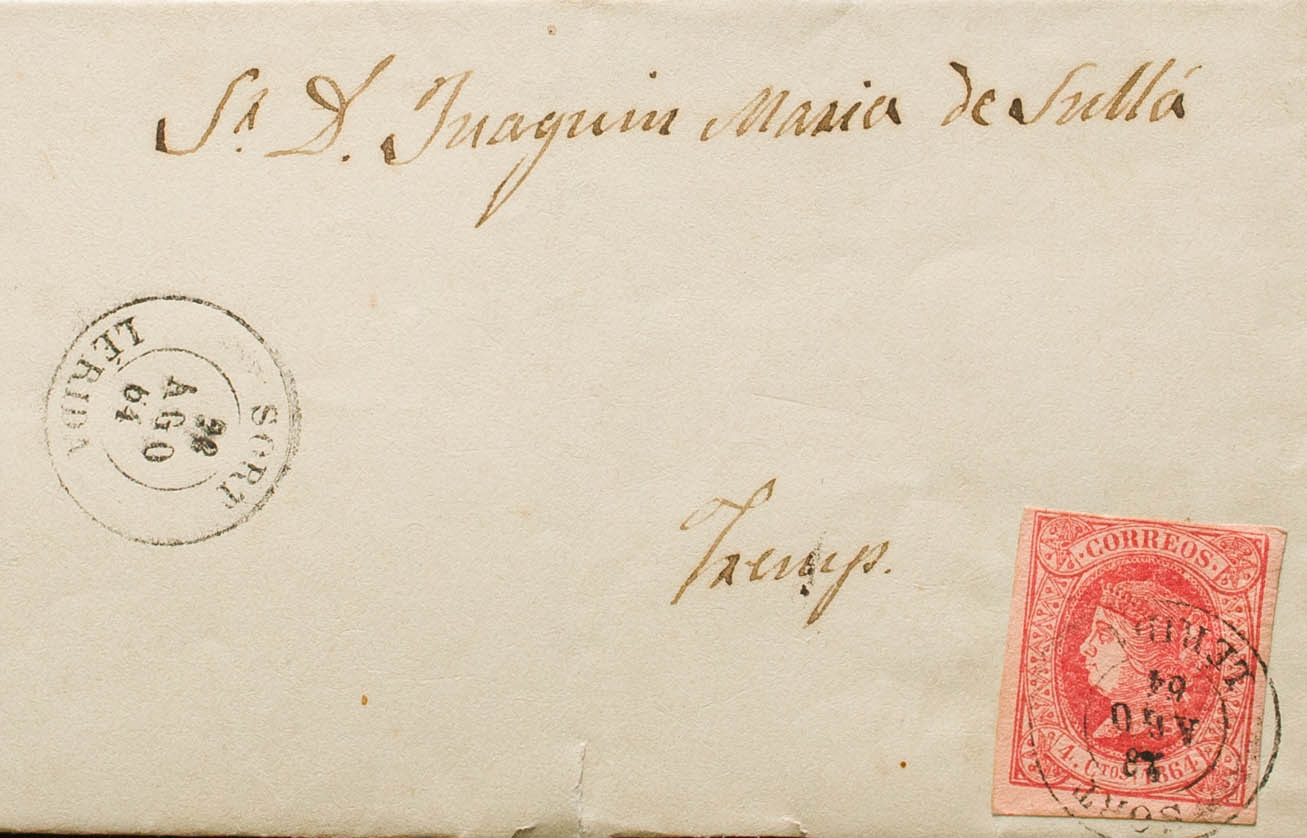 Sr. D. Juaquin Maria de Sullá
SORT
AGO
64
LÉRIDA
Tremp.
CORREOS
4. CTOS. 1864
LÉRID
64
AGO
SORT